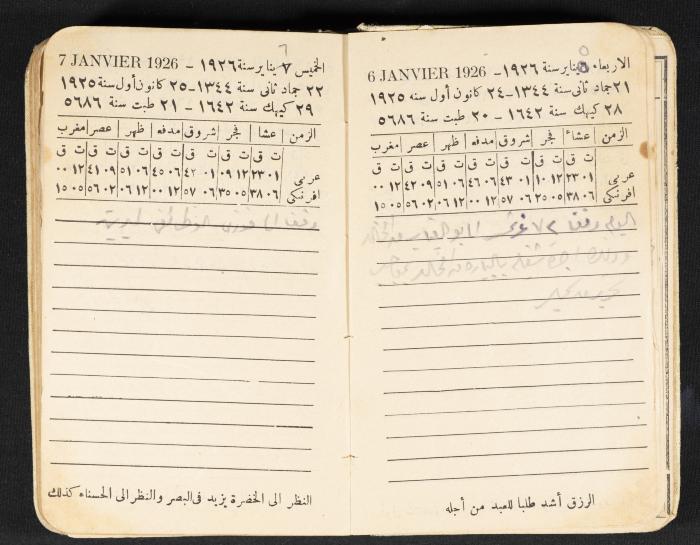 الاربعاء ٦ يناير سنة ١٩٢٦ - 6 JANVIER 1926
٢١ جماد ثانى سنة ١٣٤٤ - ٢٤ كانون أول سنة ١٩٢٥
٢٨ كيهك سنة ١٦٤٢ - ٢٠ طبت سنة ٥٦٨٦
الزمن عشاء فجر شروق مدفه ظهر عصر مغرب
ت ق ت ق ت ق ت ق ت ق ت ق ت ق
عربى ٠١ ٢٣ ١٢ ١٠ ٠١ ٤٣ ٠٦ ٤٦ ٠٦ ٥١ ٠٩ ٤٢ ١٢ ٠٠
افرنكى ٠٦ ٣٨ ٠٥ ٢٥ ٠٦ ٥٧ ١٢ ٠٠ ١٢ ٠٦ ٠٢ ٥٦ ٠٥ ١٥
اليوم
الرزق أشد طلبا للعبد من أجله
الخميس ٧ يناير سنة ١٩٢٦ - 7 JANVIER 1926
٢٢ جماد ثانى سنة ١٣٤٤ - ٢٥ كانون أول سنة ١٩٢٥
٢٩ كيهك سنة ١٦٤٢ - ٢١ طبت سنة ٥٦٨٦
الزمن عشا فجر شروق مدفه ظهر عصر مغرب
ت ق ت ق ت ق ت ق ت ق ت ق ت ق
عربى ٠١ ٢٣ ١٢ ٠٩ ٠١ ٤٢ ٠٦ ٤٥ ٠٦ ٥١ ٠٩ ٤١ ١٢ ٠٠
افرنكى ٠٦ ٣٨ ٠٥ ٣٥ ٠٦ ٥٧ ١٢ ٠٠ ١٢ ٠٦ ٠٢ ٥٦ ٠٥ ١٥
النظر الى الخضرة يزيد فى البصر والنظر الى الحسناء كذلك